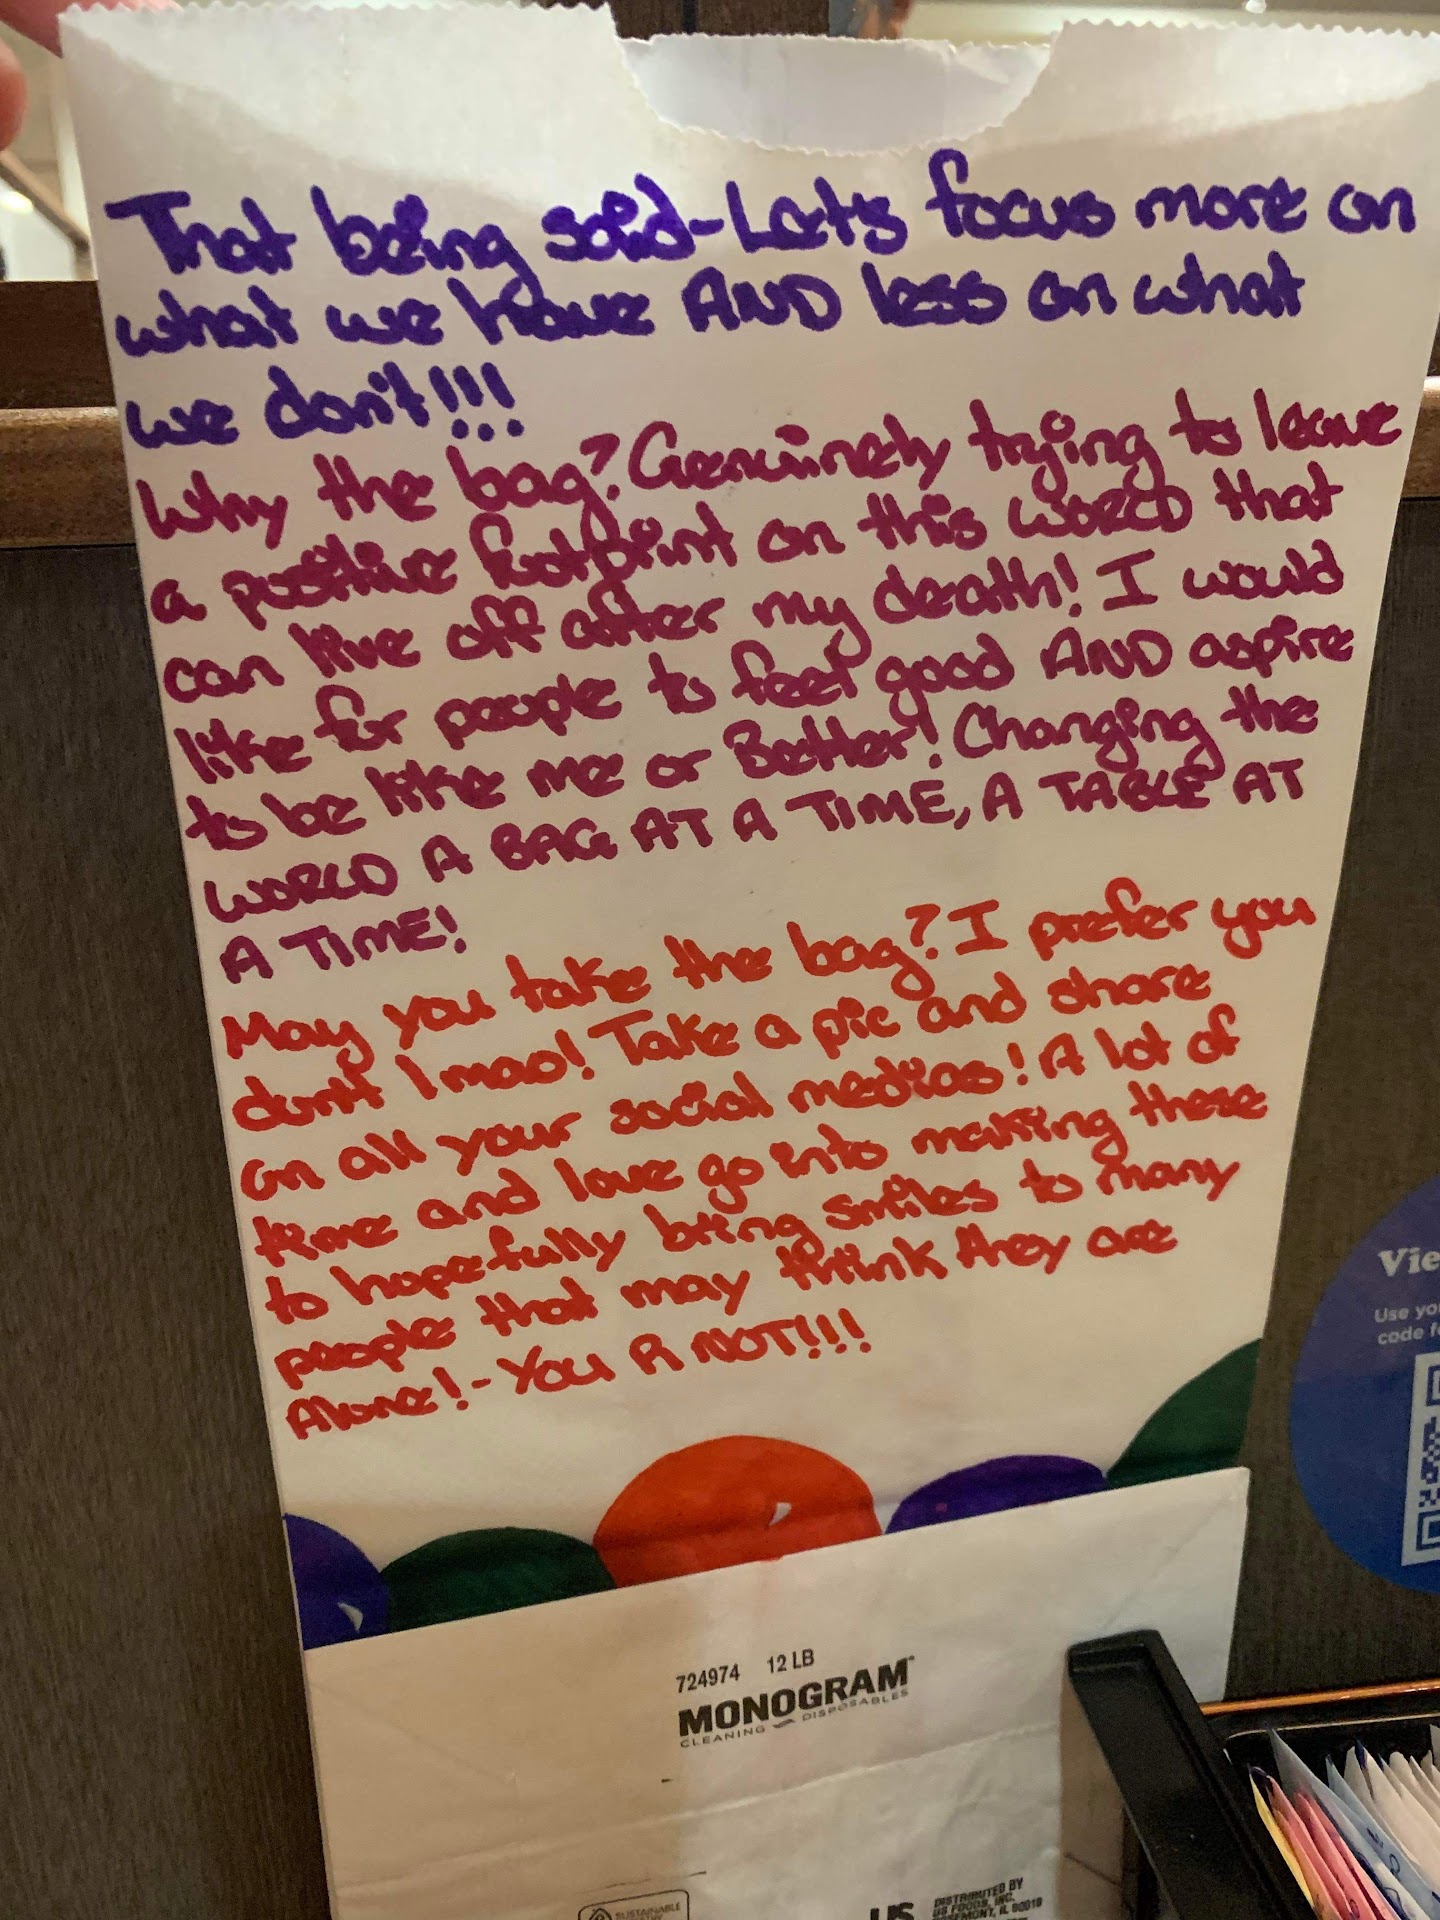 That being said-Let's focus more on
what we have AND less on what
we don't!!!
Why the bag? Genuinely trying to leave
a positive footprint on this WORLD that
can live off after my death! I would
like for people to feel good AND aspire
to be like me or Better! Changing the
WORLD A BAG AT A TIME, A TABLE AT
A TIME!
May you take the bag? I prefer you
dont lmao! Take a pic and share
on all your social medias! A lot of
time and love go into making these
to hopefully bring smiles to many
people that may think they are
Alone! - YOU R NOT!!!
Vie
Use you
code f
724974 12 LB
MONOGRAM
CLEANING DISPOSABLES
SUSTAINABLE
US
DISTRIBUTED BY
US FOODS, INC.
ROSEMONT, IL 60018